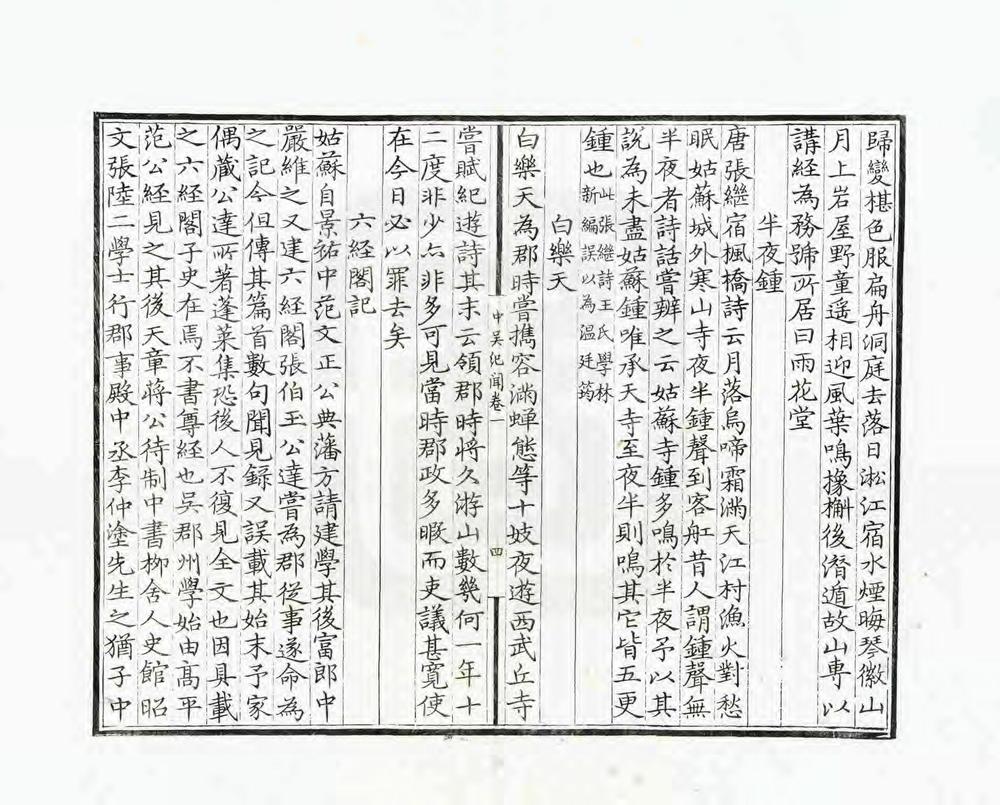 歸變椹色服扁舟洞庭去落日淞江宿水煙晦琴徽山
月上岩屋野童遥相迎風葉鳴橡槲後潛遁故山專以
講經為務號所居曰雨花堂
半夜鍾
唐張繼宿楓橋詩云月落烏啼霜滿天江村漁火對愁
眠姑蘇城外寒山寺夜半鍾聲到客舡昔人謂鍾聲無
半夜者詩話嘗辨之云姑蘇寺鍾多鳴於半夜予以其
說為未盡姑蘇鍾唯承天寺至夜半則鳴其它皆五更
鍾也此張繼詩王氏學林
新編誤以為温廷筠
白樂天
白樂天為郡時嘗攜容滿蟬態等十妓夜遊西武丘寺
中吳紀聞卷一
四
嘗賦紀遊詩其末云領郡時將久游山數幾何一年十
二度非少亦非多可見當時郡政多暇而吏議甚寬使
在今日必以罪去矣
六經閣記
姑蘇自景祐中范文正公典藩方請建學其後富郎中
嚴維之又建六經閣張伯玉公達嘗為郡從事遂命為
之記今但傳其篇首數句聞見錄又誤載其始末予家
偶藏公達所著蓬萊集恐後人不復見全文也因具載
之六經閣子史在焉不書尊經也吳郡州學始由高平
范公經見之其後天章蔣公待制中書柳舍人史館昭
文張陸二學士行郡事殿中丞李仲塗先生之猶子中